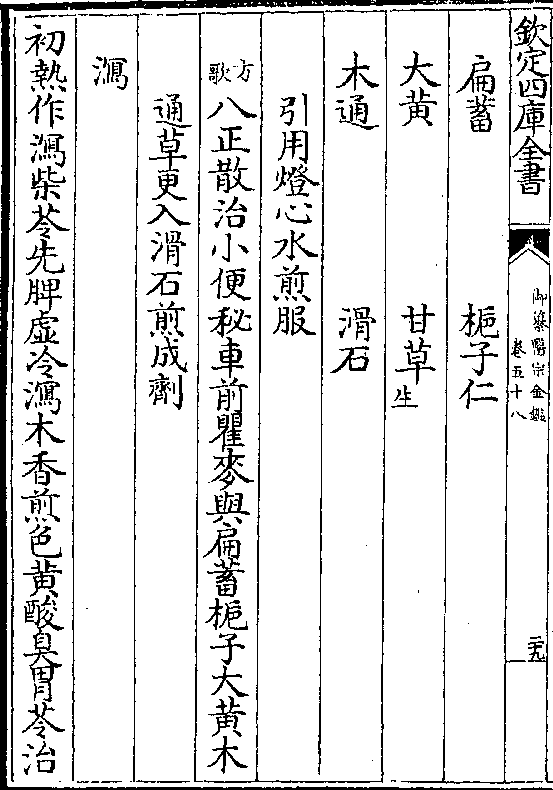 欽定四庫全書
御纂醫宗金鑑
卷五十八
扁蓄　梔子仁
大黄　甘草生
木通　滑石
引用燈心水煎服
方歌　八正散治小便秘車前瞿麥與扁蓄梔子大黄木
通草更入滑石煎成劑
㵼
初熱作㵼柴苓先脾虛冷㵼木香煎色黄酸臭胃苓治